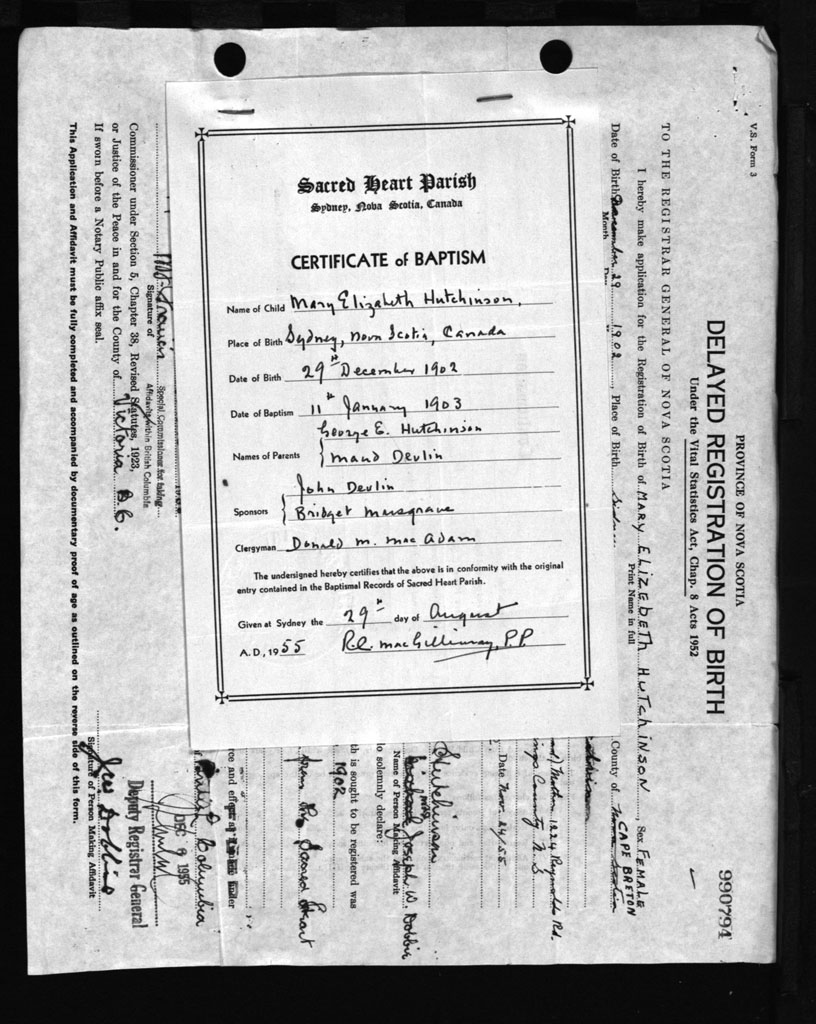 Sacred Heart Parish
Sydney, Nova Scotia, Canada
CERTIFICATE of BAPTISM
Name of Child Mary Elizabeth Hutchinson.
Place of Birth Sydney, Nova Scotia, Canada
Date of Birth 29th December 1902
Date of Baptism 11th January 1903
George E. Hutchinson
Names of Parents Maud Devlin
John Devlin
Sponsors Bridget Musgrave
Clergyman Donald M. MacAdam
The undersigned hereby certifies that the above is in conformity with the original
entry contained in the Baptismal Records of Sacred Heart Parish.
Given at Sydney the 29th day of August
A.D., 1955 R.C. MacGillivray, P.P.
V.S. Form 3
PROVINCE OF NOVA SCOTIA
990794
DELAYED REGISTRATION OF BIRTH
Under the Vital Statistics Act, Chap. 8 Acts 1952
TO THE REGISTRAR GENERAL OF NOVA SCOTIA
I hereby make application for the Registration of Birth of MARY ELIZEBETH HUTCHINSON, Sex FEMALE
Print Name in full
CAPE BRETON
Date of Birth December 29 1902, Place of Birth County of Nova Scotia
Month
1224 Reynolds Rd.
County N.S
Date Nov. 24/55
Hutchinson
Joseph W. Dobbie
Name of Person Making Affidavit
o solemnly declare:
th is sought to be registered was
1902
from the Sacred Heart
rce and effect as under
Columbia
Signature of
Special Commissioner for taking
Affidavits within British Columbia
Deputy Registrar General
DEC 9 1955
Commissioner under Section 5, Chapter 38, Revised Statutes, 1923,
or Justice of the Peace in and for the County of Victoria B.C.
If sworn before a Notary Public affix seal.
Jos Dobbie
Signature of Person Making Affidavit
This Application and Affidavit must be fully completed and accompanied by documentary proof of age as outlined on the reverse side of this form.